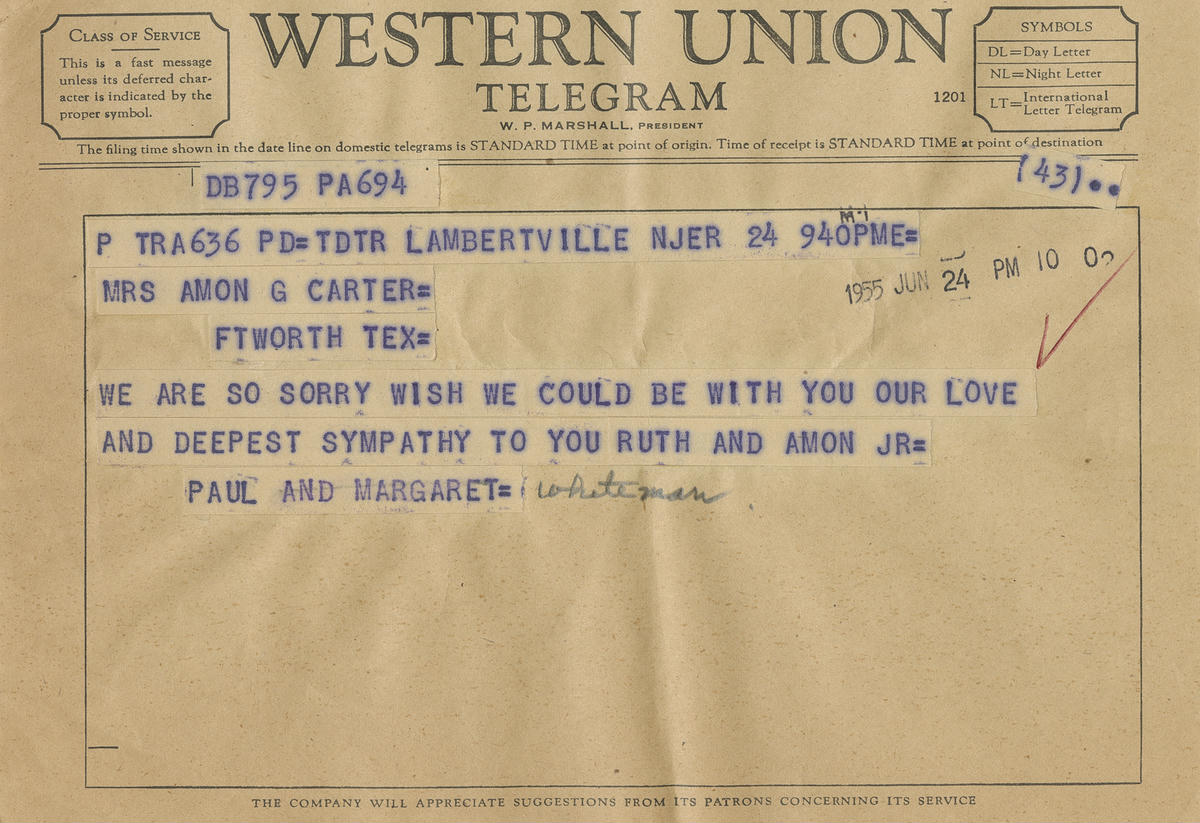 CLASS OF SERVICE
This is a fast message
unless its deferred char-
acter is indicated by the
proper symbol.
WESTERN UNION
TELEGRAM
W. P. MARSHALL, PRESIDENT
1201
SYMBOLS
DL=Day Letter
NL=Night Letter
LT=International Letter Telegram
The filing time shown in the date line on domestic telegrams is STANDARD TIME at point of origin. Time of receipt is STANDARD TIME at point of destination
DB795 PA694
(43)..
P TRA636 PD=TDTR LAMBERTVILLE NJER 24 940PME=
MRS AMON G CARTER=
1955 JUN 24 PM 10 0
FTWORTH TEX=
WE ARE SO SORRY WISH WE COULD BE WITH YOU OUR LOVE
AND DEEPEST SYMPATHY TO YOU RUTH AND AMON JR=
PAUL AND MARGARET= Whiteman
THE COMPANY WILL APPRECIATE SUGGESTIONS FROM ITS PATRONS CONCERNING ITS SERVICE